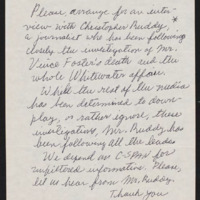 Please arrange for an inter-
view with Christopher Ruddy, *
a journalist who has been following
closely the investigation of Mr.
Vince Foster's death and the
whole Whitewater affair.
While the rest of the media
has been determined to down-
play, or rather ignore, these
investigations, Mr. Ruddy has
been following all the leads.
We depend on C-SPAN for
unfiltered information. Please,
let us hear from Mr. Ruddy.
Thank you